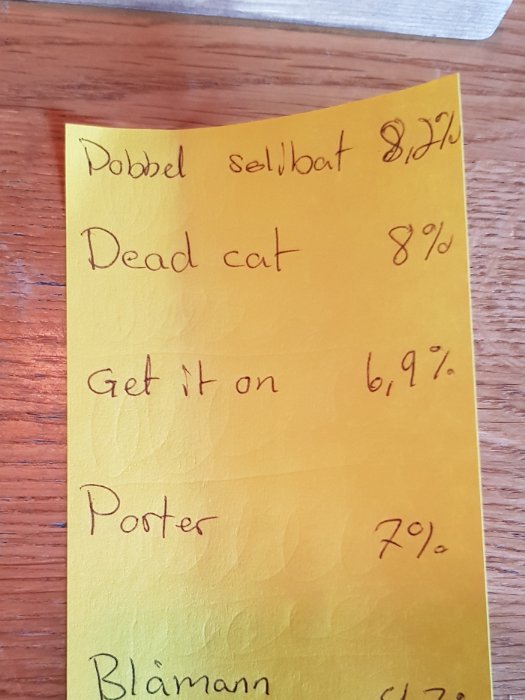 Dobbel selvbat 8,2%
Dead cat 8%
Get it on 6,9%
Porter 7%
Blåmann